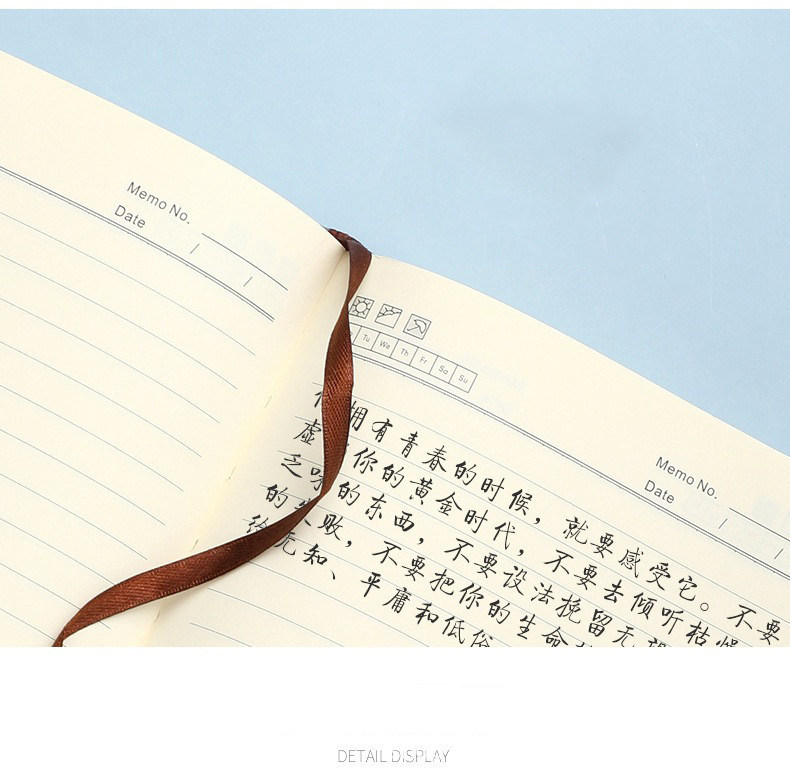 Memo No.
Date / /
Tu We Th Fr Sa Su
Memo No.
Date / /
拥有青春的时候，就要感受它。不要
虚 你的黄金时代，不要去倾听枯燥
乏味的东西，不要设法挽留无望
的失败，不要把你的生命
给无知、平庸和低俗
DETAIL DISPLAY